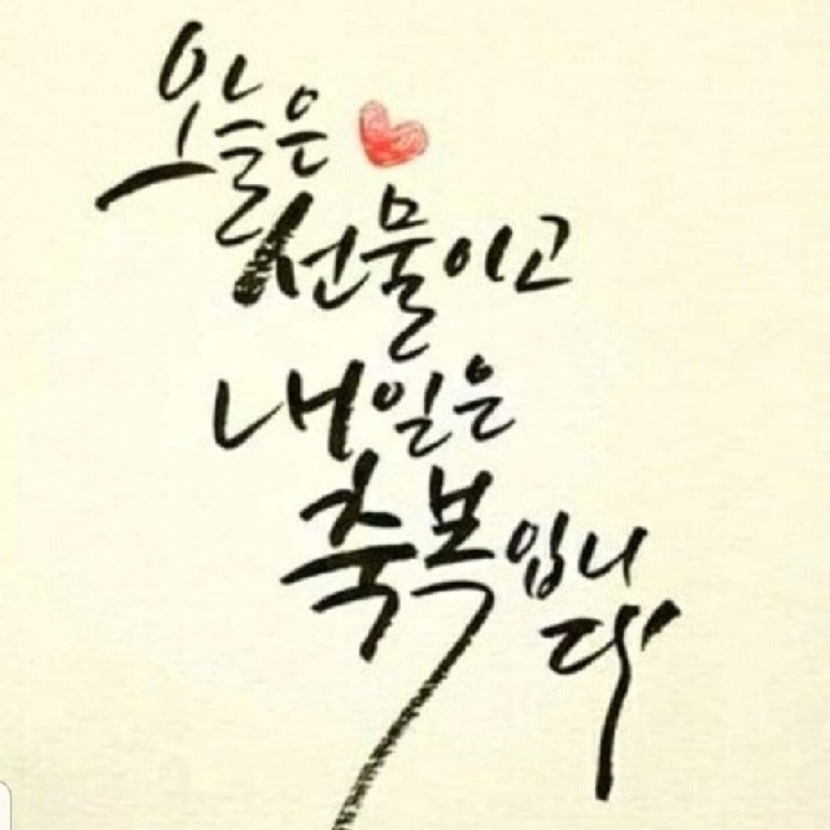 오늘은
선물이고
내일은
축복입니
다